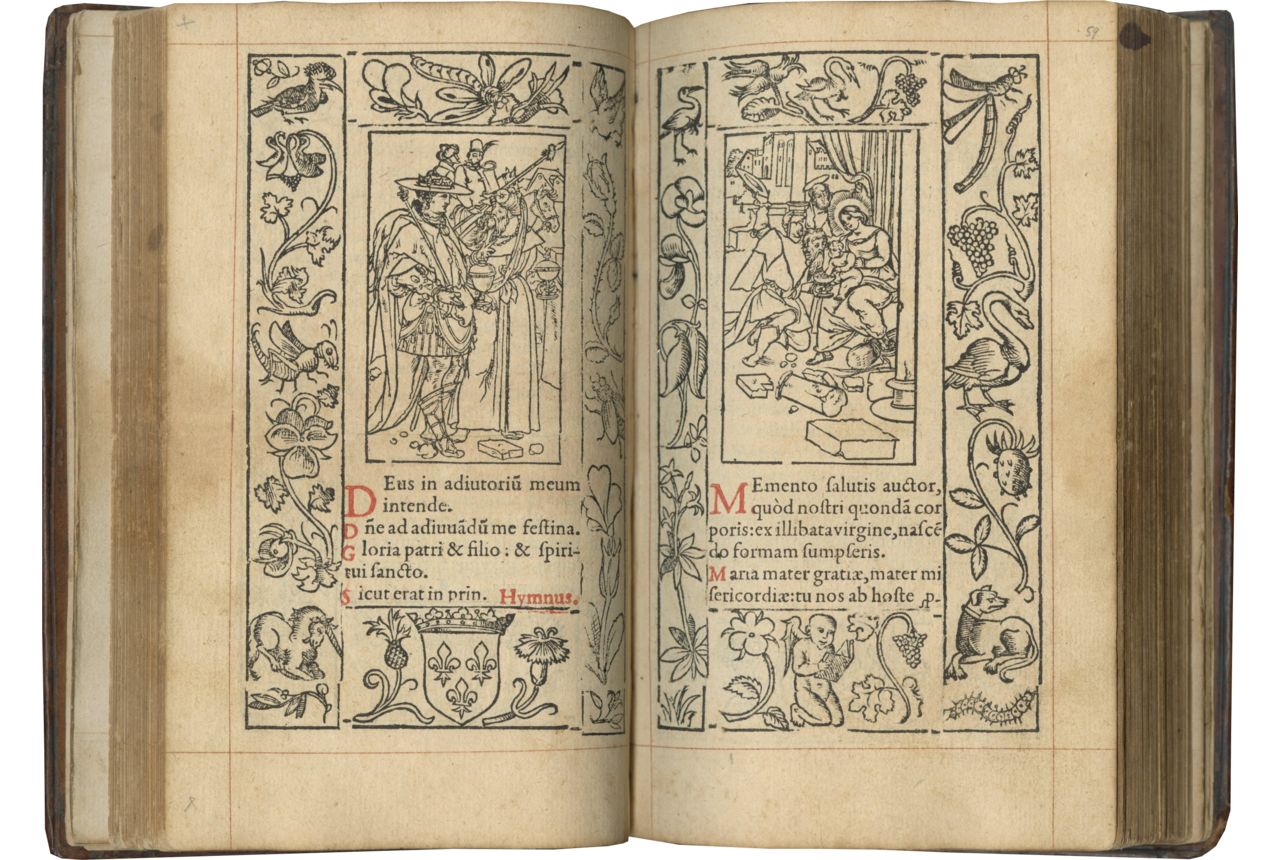 DEus in adiutoriū meum
intende.
Dñe ad adiuuādū me festina.
Gloria patri & filio : & spiri-
tui sancto.
Sicut erat in prin. Hymnus.
59
MEmento salutis auctor,
quòd nostri quondā cor
poris: ex illibata virgine, nascē
do formam sumpseris.
Maria mater gratiæ, mater mi
sericordiæ: tu nos ab hoste ꝓ-